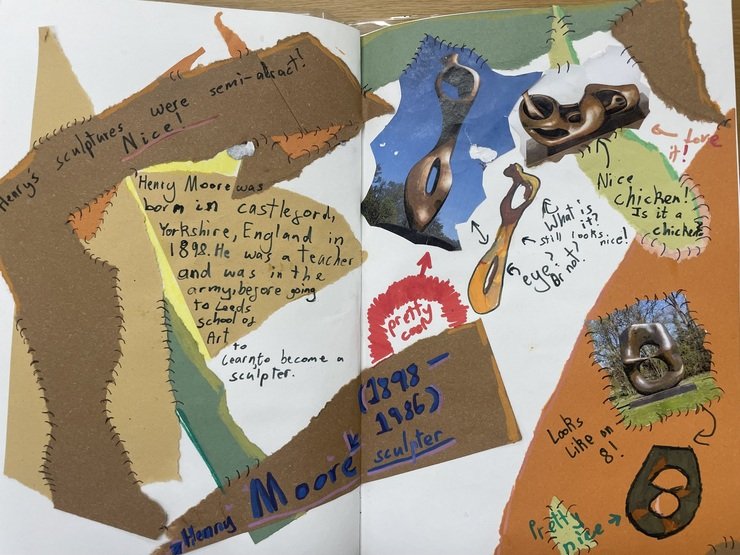 Henry's sculptures were semi-absract!
Nice!
Henry Moore was
born in castleford,
Yorkshire, England in
1898. He was a teacher
and was in the
army, before going
to Leeds
school of
Art
to
Learn to become a
sculpter.
Henry Moore
(1898 –
1986)
sculpter
pretty
cool
What is
it?
still looks
nice!
eye?
or not?
love
it!
Nice
chicken!
Is it a
chicken?
Looks
Like an
8!
Pretty
nice